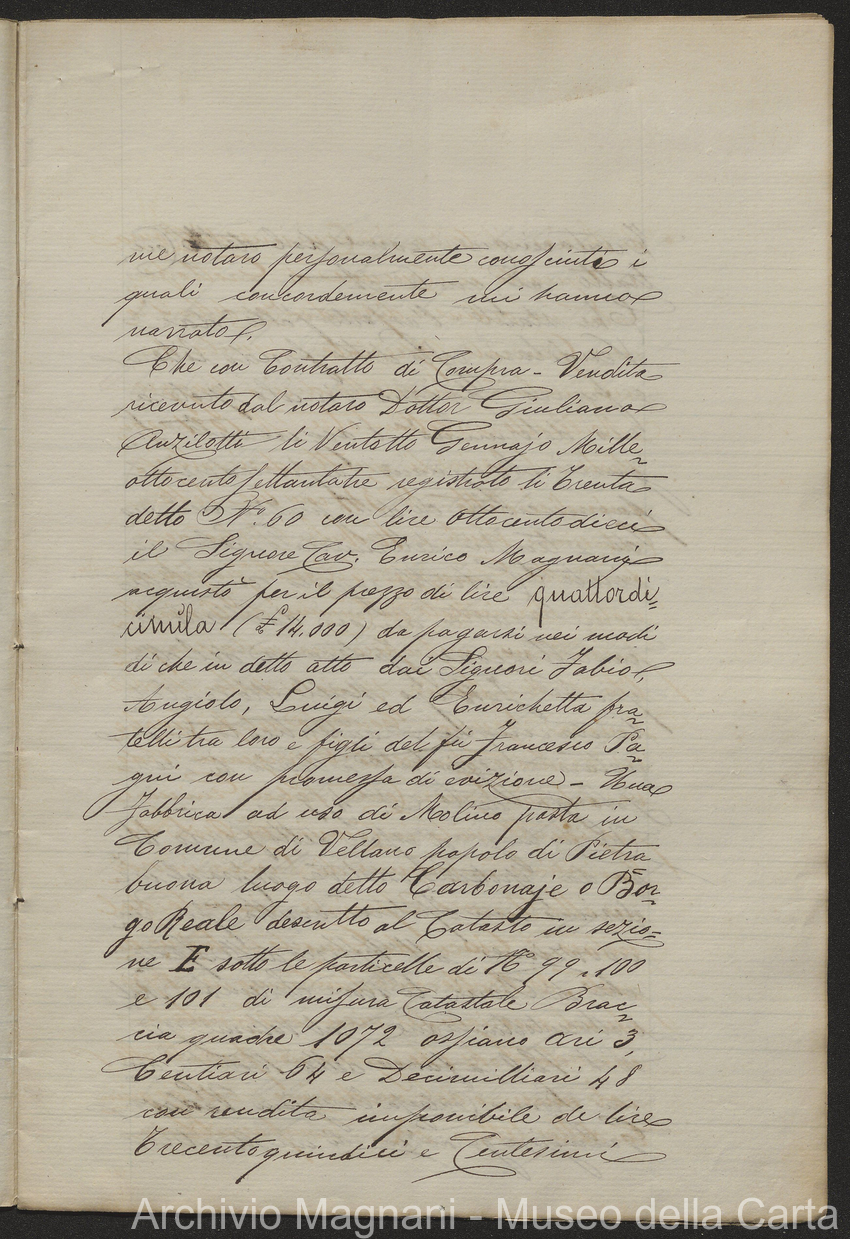 me notaro personalmente conosciuti i
quali concordemente mi hanno
narrato.
Che con Contratto di Compra - Vendita
ricevuto dal notaro Dottor Giuliano
Anzilotti li Ventotto Gennajo Mille=
ottocentosettantatre registrato li Trenta
detto N.° 60 con lire ottocentodieci
il Signore Cav. Enrico Magnani
acquistò per il prezzo di lire quattordi=
cimila (£ 14.000) da pagarsi nei modi
di che in detto atto dai Signori Fabio,
Angiolo, Luigi ed Enrichetta fra=
telli tra loro e figli del fù Francesco Pa=
gni con promessa di evizione - Una
Fabbrica ad uso di Molino posta in
Comune di Vellano popolo di Pietra
buona luogo detto Carbonaje o Bor=
go Reale descritto al Catasto in sezio=
ne E sotto le particelle di N.° 99, 100
e 101 di misura Catastale Brac=
cia quadre 1072 ossiano Ari 3,
Centiari 64 e Decimilliari 48
con rendita imponibile di lire
Trecentoquindici e Centesimi
Archivio Magnani - Museo della Carta